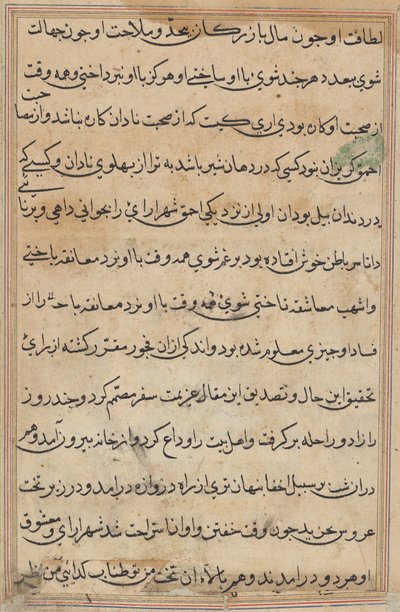 لطافت او جون مال بازرکان بیحد و ملاحت او جون جهالت
شوی بیعدد هر جند شوی با او ساختی او هرکز با او نپرداختی و همه وقت
از صحبت او کاره بودی اری کیست که از صحبت نادان کاره نباشد و از مصاحبت
احمق کریزان نبود کسی که در دهان شیر باشد به تر از پهلوی نادان و کسی که
در دندان پیل بود ان اولی از نزدیکی احمق شهرارای را بجوانی داهی و برنایی
داناسر باطن خوش افتاده بود بر غم شوی همه وقت با او نرد معانقه باختی
و اشهب معاشقه تاختی شوی همه وقت با او نرد معانقه باختی را از
فساد او جیزی معلوم شده بود و اندکی از ان فجور مقرر کشته از برای
تحقیق این حال و تصدیق این مقال عزیمت سفر مصمم کرد و جند روز
را زاد و راحله بر کرفت و اهل بیت را وداع کرد و از خانه بیرون آمد و هم
در ان شب بر سبیل اخفا پنهان تری از راه دروازه درامد و در زیر تخت
عروس خزید جون وقت خفتن و اوان استراحت شد شهرارای و معشوق
او هر دو درامدند و هم بالاء ان تخت من تو طناب